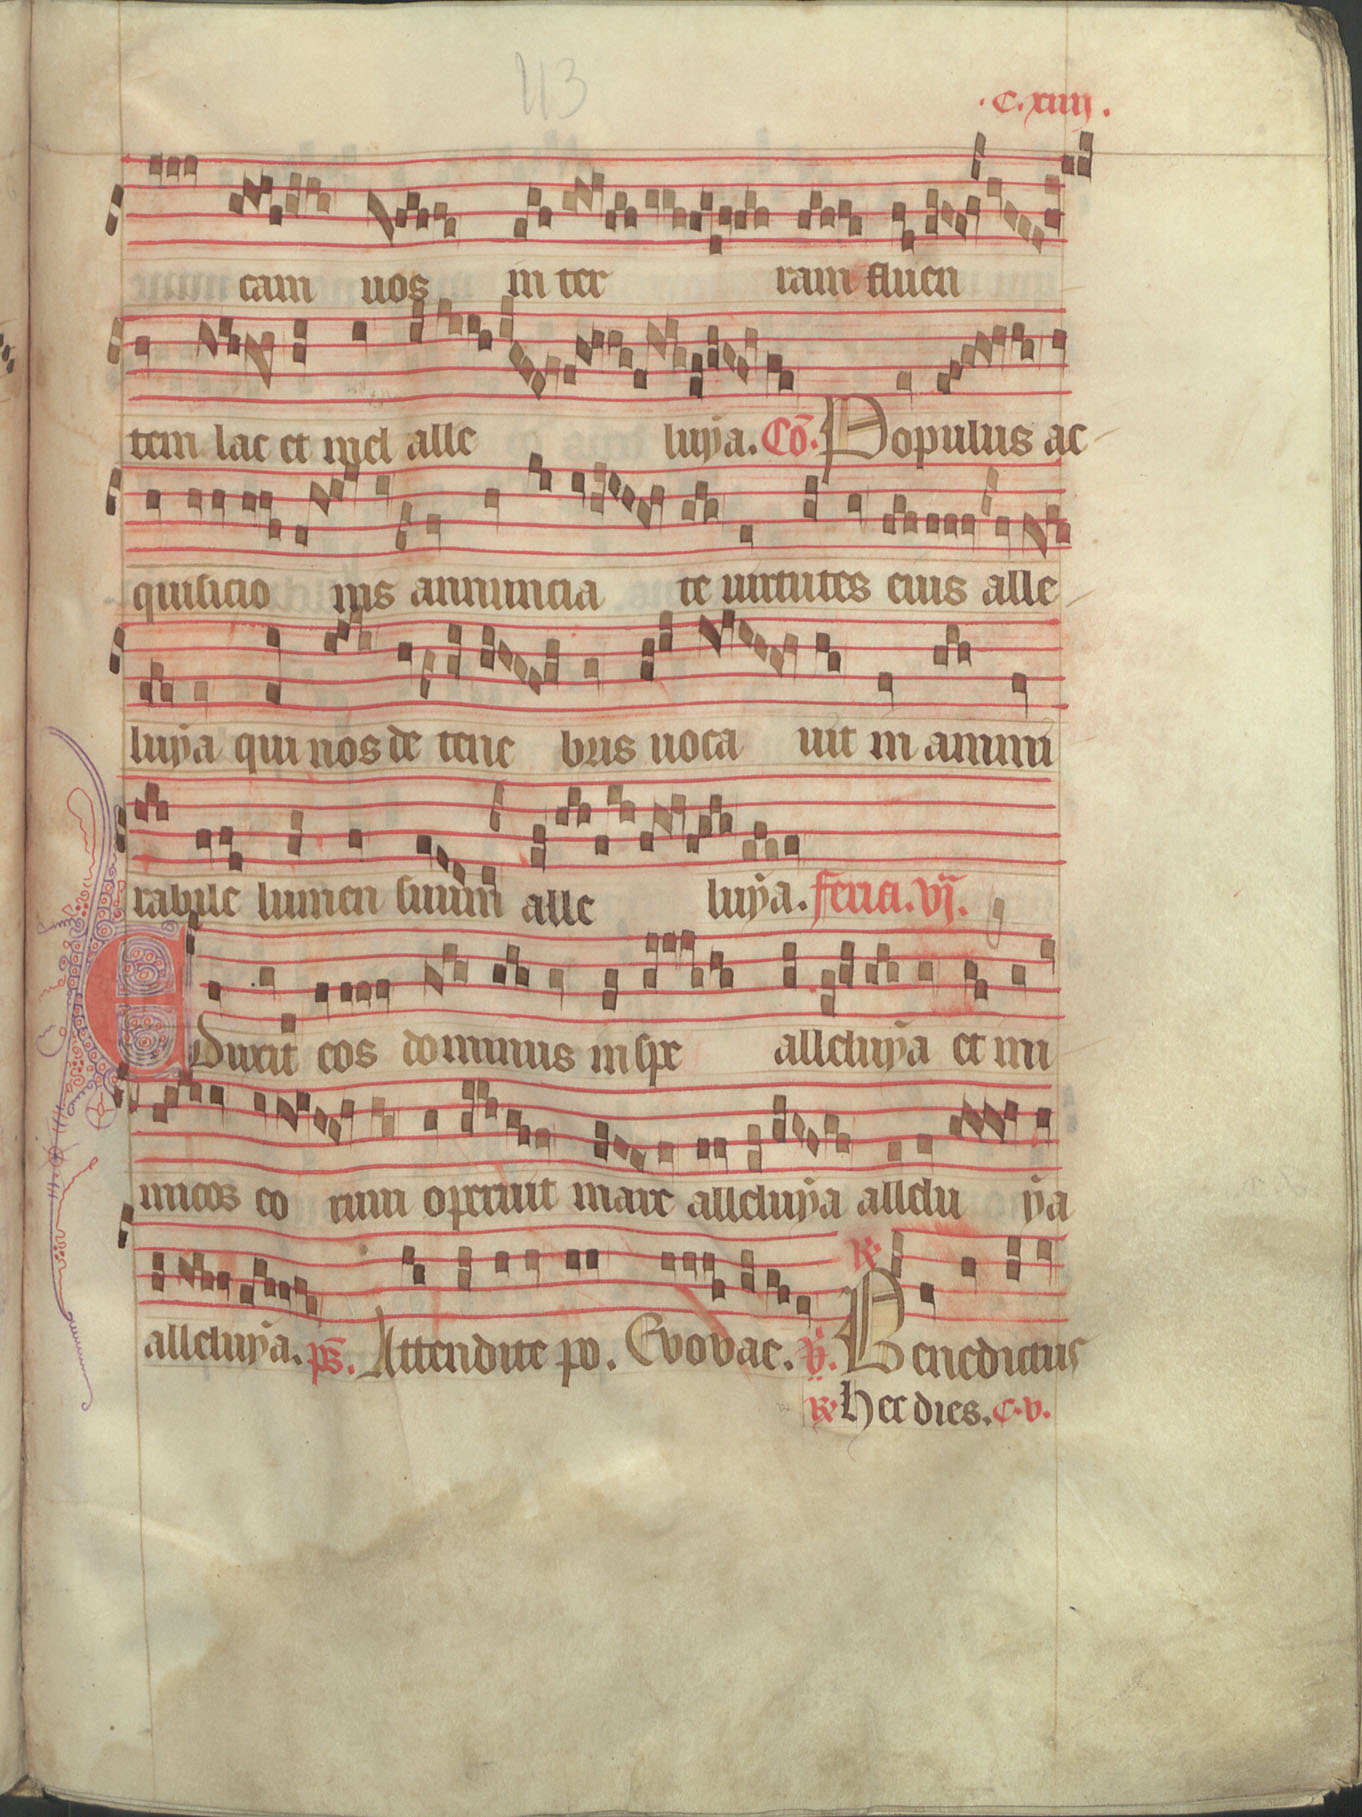 113
.c.xiiij.
cam uos in ter ram fluen
tem lac et mel alle luya. Co. Populus ac
quisicio nis annuncia te uirtutes eius alle
luya qui nos de tene bris uoca uit in ammi
rabile lumen suum alle luya. feria. vj.
Eduxit eos dominus in spe alleluya et ini
micos eo rum operuit mare alleluya allelu ya
alleluya. ps. Attendite po. Evovae. R. V. Benedictus
R. hec dies. c.v.